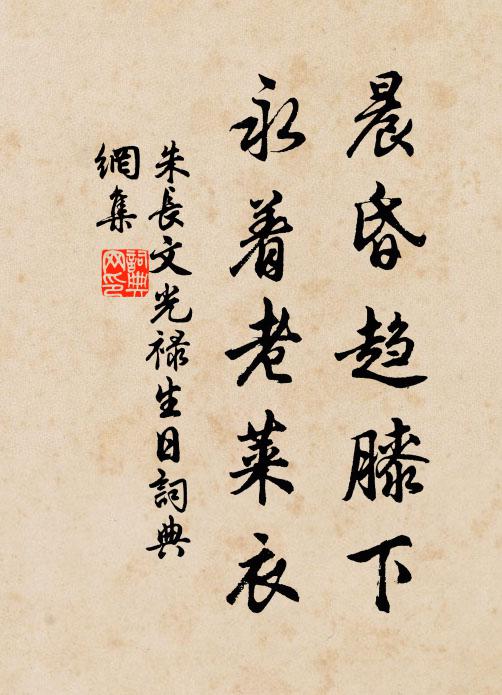 晨昏趋膝下
永着老莱衣
朱長文光禄生日詞典
網集
詞典
网印